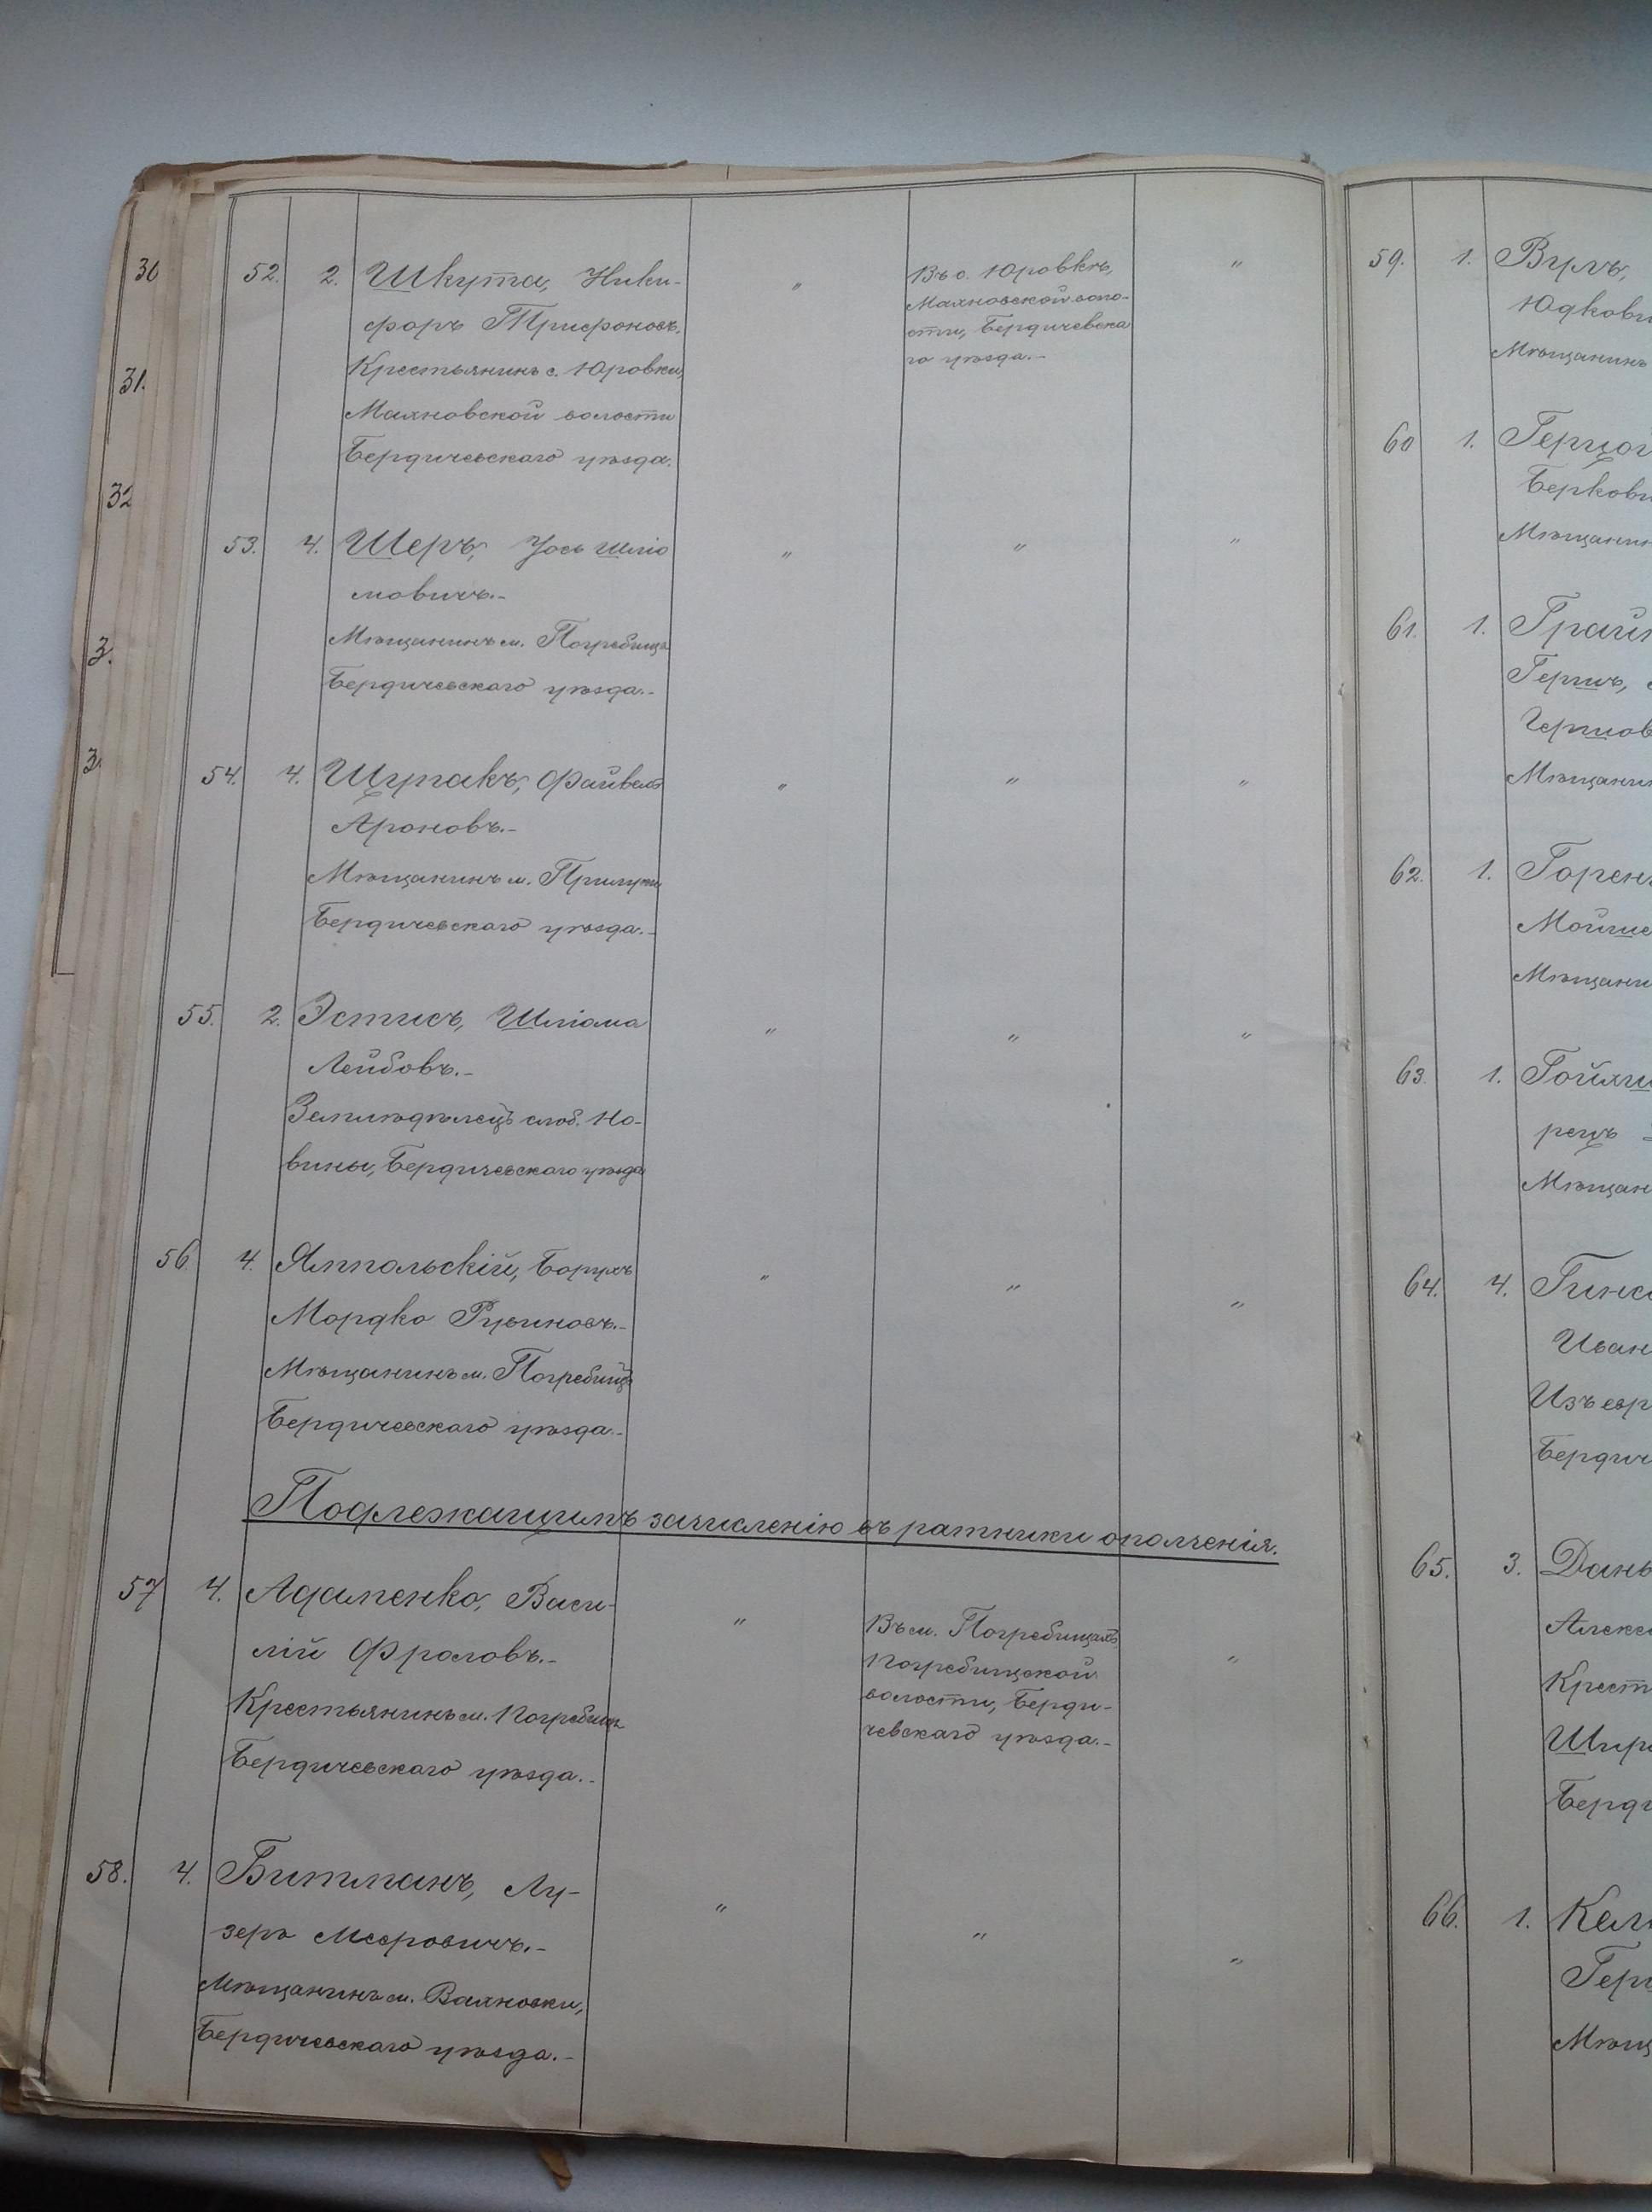 30
31.
32
3.
3.
52. 2. Шкута, Ники- " Въ с. Юровкѣ, "
форъ Трифоновъ. Махновской воло-
Крестьянинъ с. Юровки, сти, Бердичевска
Махновской волости го уѣзда.-
Бердичевскаго уѣзда.
53. 4. Шеръ, Іось Шліо " " "
мовичъ.-
Мѣщанинъ м. Погребищъ
Бердичевскаго уѣзда.-
54. 4. Щупакъ, Файвель " " "
Ароновъ.-
Мѣщанинъ м. Прилуки
Бердичевскаго уѣзда.-
55. 2. Эстисъ, Шліома " " "
Лейбовъ.-
Землѣдѣлецъ слоб. Но-
вины, Бердичевскаго уѣзда
56. 4. Ямпольскій, Борухъ " " "
Мордко Рувиновъ.-
Мѣщанинъ м. Погребищъ
Бердичевскаго уѣзда.-
Подлежащимъ зачисленію въ ратники ополченія.
57 4. Адаменко, Васи- " Въ м. Погребищахъ "
лій Фроловъ.- Погребищской
Крестьянинъ м. Погребищъ волости, Берди-
Бердичевскаго уѣзда.- чевскаго уѣзда.-
58. 4. Битманъ, Лу- " " "
зеръ Мееровичъ.-
Мѣщанинъ м. Вахновки,
Бердичевскаго уѣзда.-
59. 1. Вулъ,
Юдкови
Мѣщанинъ
60 1. Герцог
Беркови
Мѣщанин
61. 1. Грайн
Гершъ,
Гершов
Мѣщанин
62. 1. Горен
Мойше
Мѣщани
63. 1. Гойхи
рецъ
Мѣщан
64. 4. Гинс
Иван
Изъ евр
Бердич
65. 3. Дань
Алекс
Крест
Шир
Берди
66. 1. Кел
Гер
Мѣщ